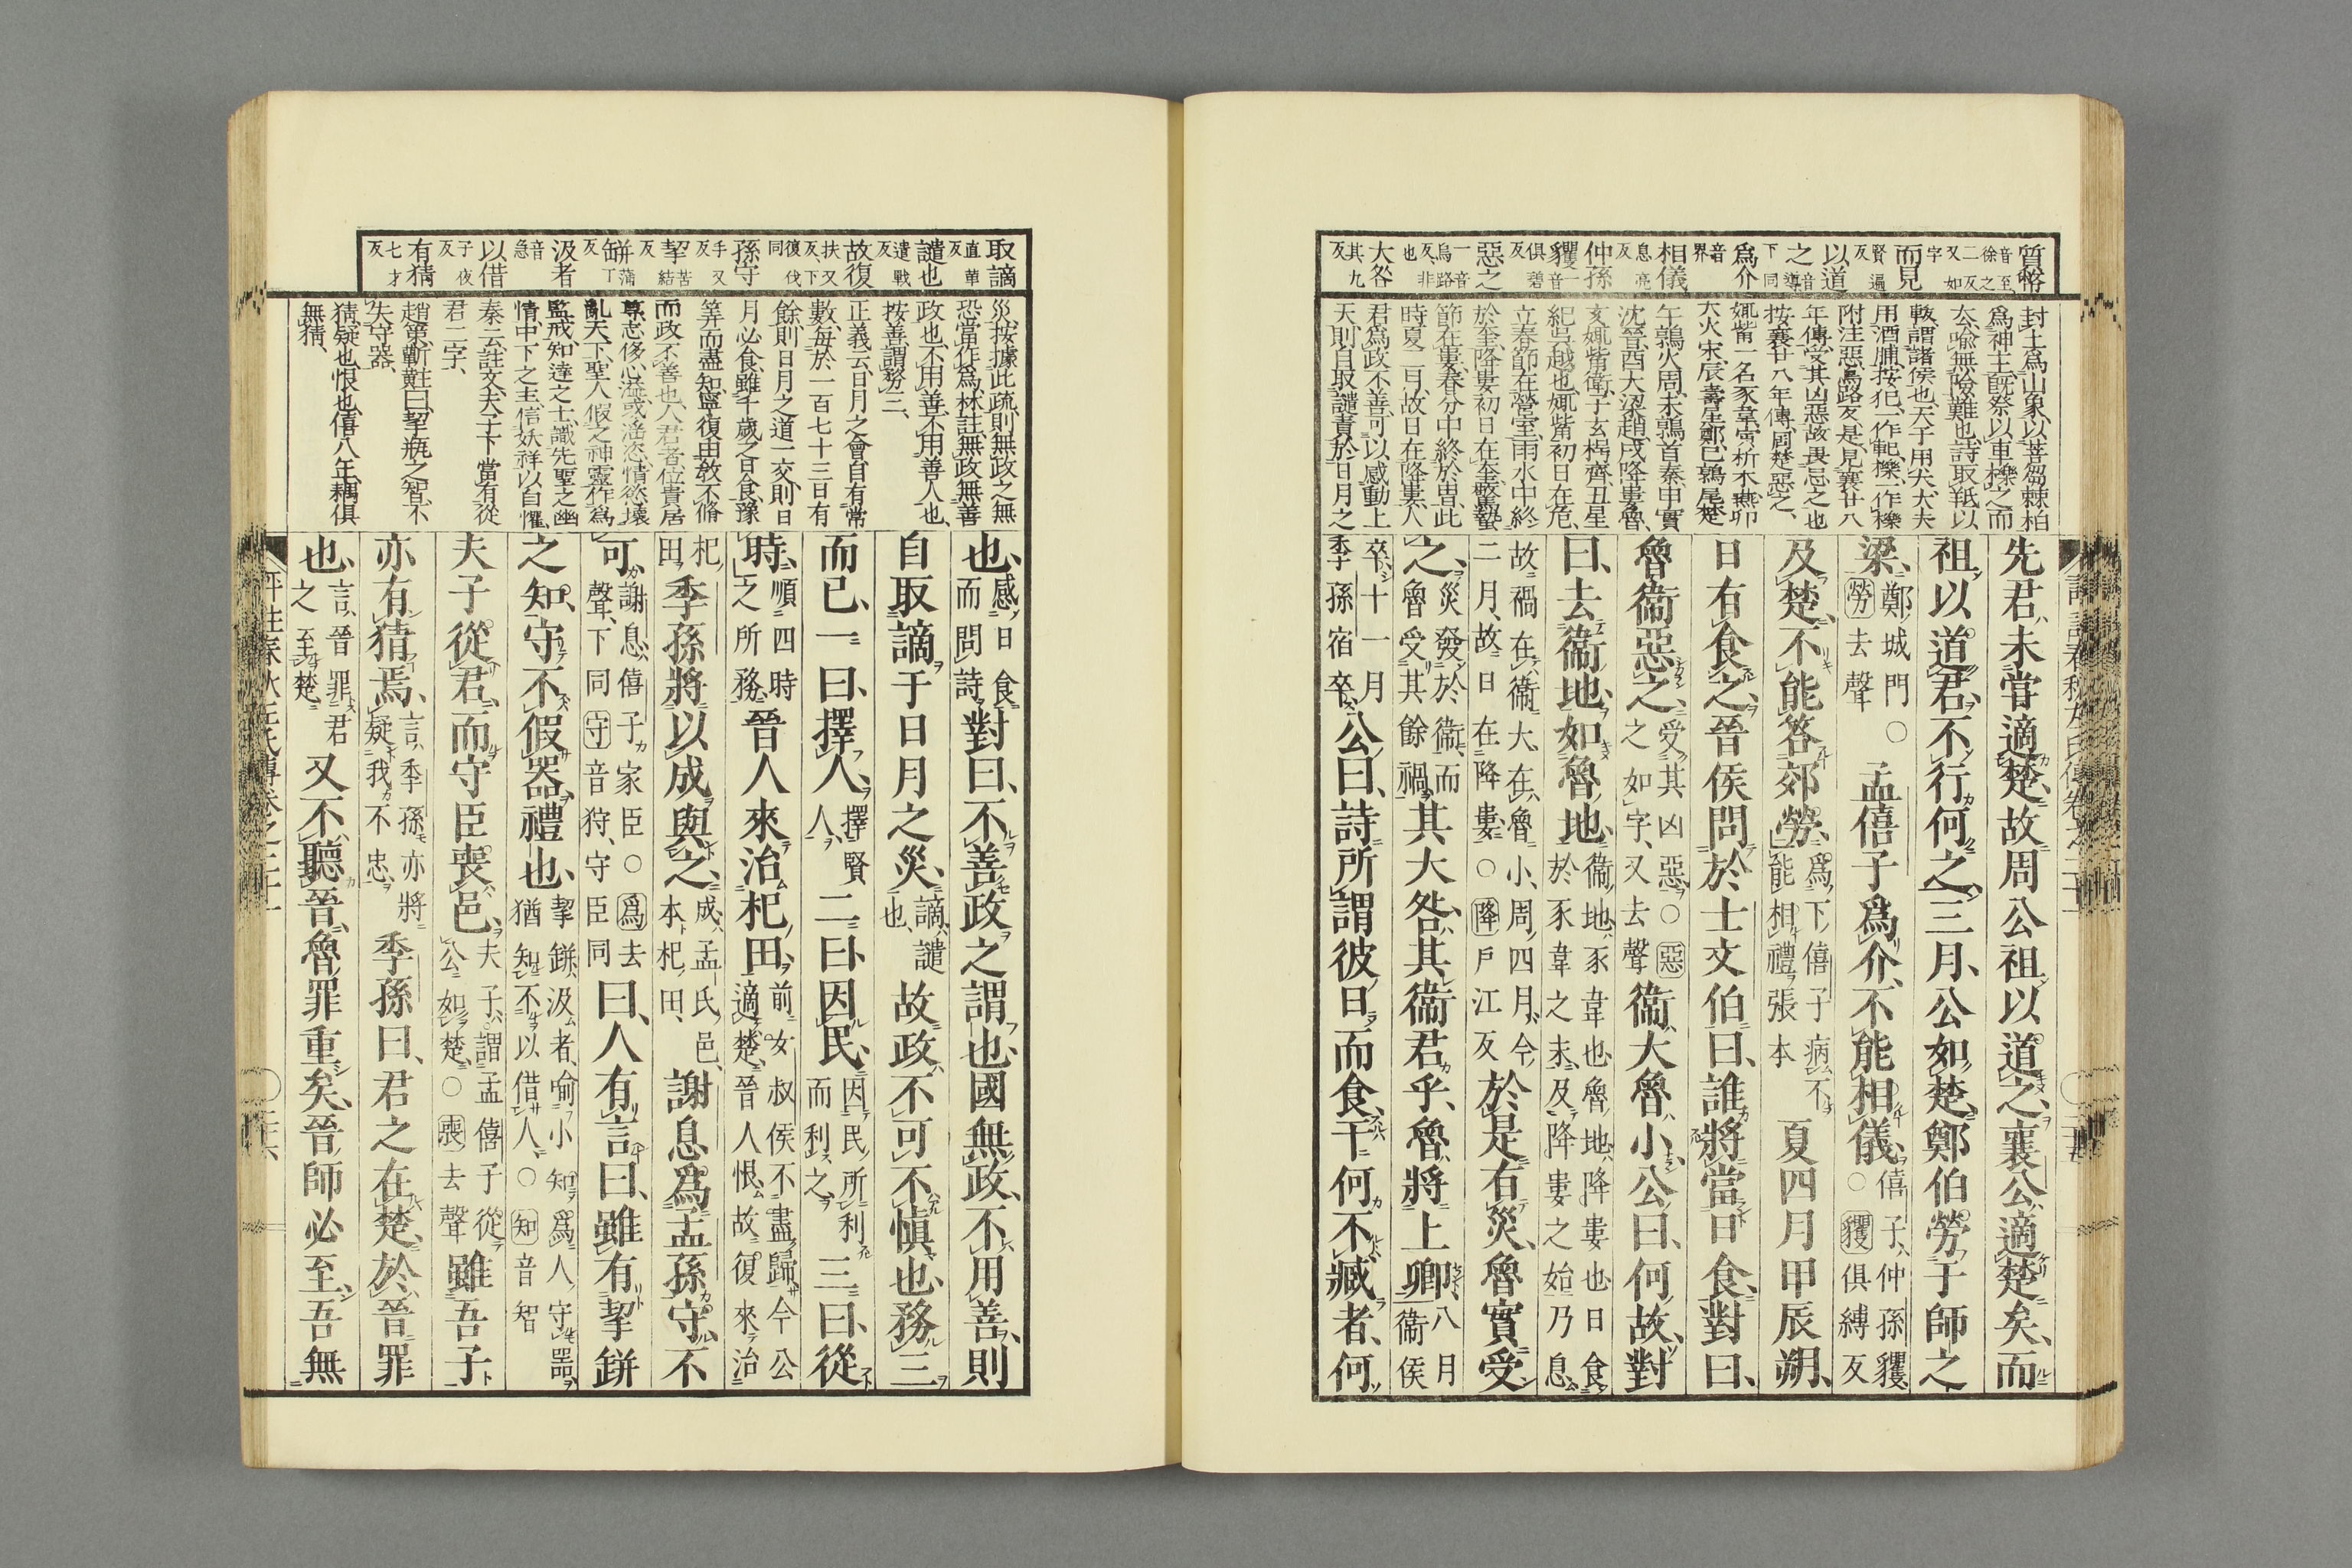 質幣
音至徐之二反又如字
而見
賢遍反
以道
之
音導下同
爲介
音界
相儀
息亮反
仲孫
貜
音俱碧反
惡之
一音烏路反非也
大咎
其九反
封土爲山象、以菩芻棘柏
爲神主、旣祭以車轢之而
去、喻無險難也、詩取羝以
軷、謂諸侯也、天子用犬、大夫
用酒脯、按犯一作䡊、轢一作櫟
附注、惡、烏路反是、見襄廿八
年傳、受其凶惡故畏忌之也
按襄廿八年傳、周楚惡之、
娵訾一名豕韋、寅析木燕、卯
大火宋、辰壽星鄭、巳鶉尾楚
午鶉火周、未鶉首秦、申實
沈晉、酉大梁趙、戌降婁魯、
亥娵訾衛、子玄枵齊、丑星
紀吳越也、娵訾初日在危、
立春節在營室、雨水中終
於奎、降婁初日在奎、驚蟄
節在婁、春分中終於胃、此
時夏二月、故日在降婁、人
君爲政不善、可以感動上
天、則自取譴責於日月之
先君、未嘗適楚、故周公祖以道之、襄公適楚矣、而
祖以道君、不行何之、三月、公如楚、鄭伯勞于師之
梁、鄭城門〇勞去聲孟僖子爲介、不能相儀、僖子、仲孫貜、〇貜俱縛反
及楚、不能荅郊勞、爲下僖子病不能相禮張本夏四月甲辰朔、
日有食之、晉侯問於士文伯曰、誰將當日食、對曰、
魯衞惡之、受其凶惡〇惡之如字、又去聲衞大魯小、公曰、何故、對
曰、去衞地如魯地、衞地、豕韋也、魯地、降婁也、日食於豕韋之末、及降婁之始乃息
故禍在衞大、在魯小、周四月、今二月、故日在降婁〇降戶江反於是有災、魯實受
之、災發於衞、而魯受其餘禍其大咎、其衞君乎、魯將上卿、八月衞侯
卒、十一月季孫宿卒公曰、詩所謂彼日而食、于何不臧者、何
取謫
直革反
譴也
遣戰反
故復
扶又反、下復伐同
孫守
手又反
挈
苦結反
缾
蒲丁反
汲者
音急
以借
子夜反
有猜
七才反
災、按據此疏、則無政之無
恐當作爲、林註、無政無善
政也、不用善、不用善人也、
按善謂務三、
正義云、日月之會自有常
數、每於一百七十三日有
餘、則日月之道一交、則日
月必食、雖千歲之日食、豫
筭而盡知、寧復由敎不脩
而政不善也、人君者位貴居
尊、志侈心溢、或淫恣情慾、壞
亂天下、聖人假之神靈、作爲
鑒戒、知達之士、識先聖之幽
情、中下之主、信妖祥以自懼、
秦云、註文夫子下當有從
君二字、
趙第斬註曰、挈缾之智、不
失守器、
猜、疑也恨也、僖八年、耦俱
無猜、
也、感日食而問詩對曰、不善政之謂也、國無政、不用善、則
自取謫于日月之災、謫、譴也、故政不可不愼也、務三
而已、一曰、擇人、擇賢人、二曰、因民、因民所利而利之、三曰、從
時、順四時之所務晉人來治杞田、前女叔侯不盡歸、今公適楚、晉人恨、故復來治
杞田、季孫將以成與之、成、孟氏邑、本杞田、謝息爲孟孫守、不
可、謝息、僖子家臣〇爲去聲、下同守音狩、守臣同曰、人有言曰、雖有挈缾
之知、守不假器、禮也、挈缾、汲者、喻小知、爲人守器、猶知不以借人、〇知音智
夫子從君、而守臣喪邑、夫子、謂孟僖子從公如楚、〇喪去聲雖吾子
亦有猜焉、言季孫亦將疑我不忠、季孫曰、君之在楚、於晉罪
也、言晉罪君之至楚又不聽晉、魯罪重矣、晉師必至、吾無